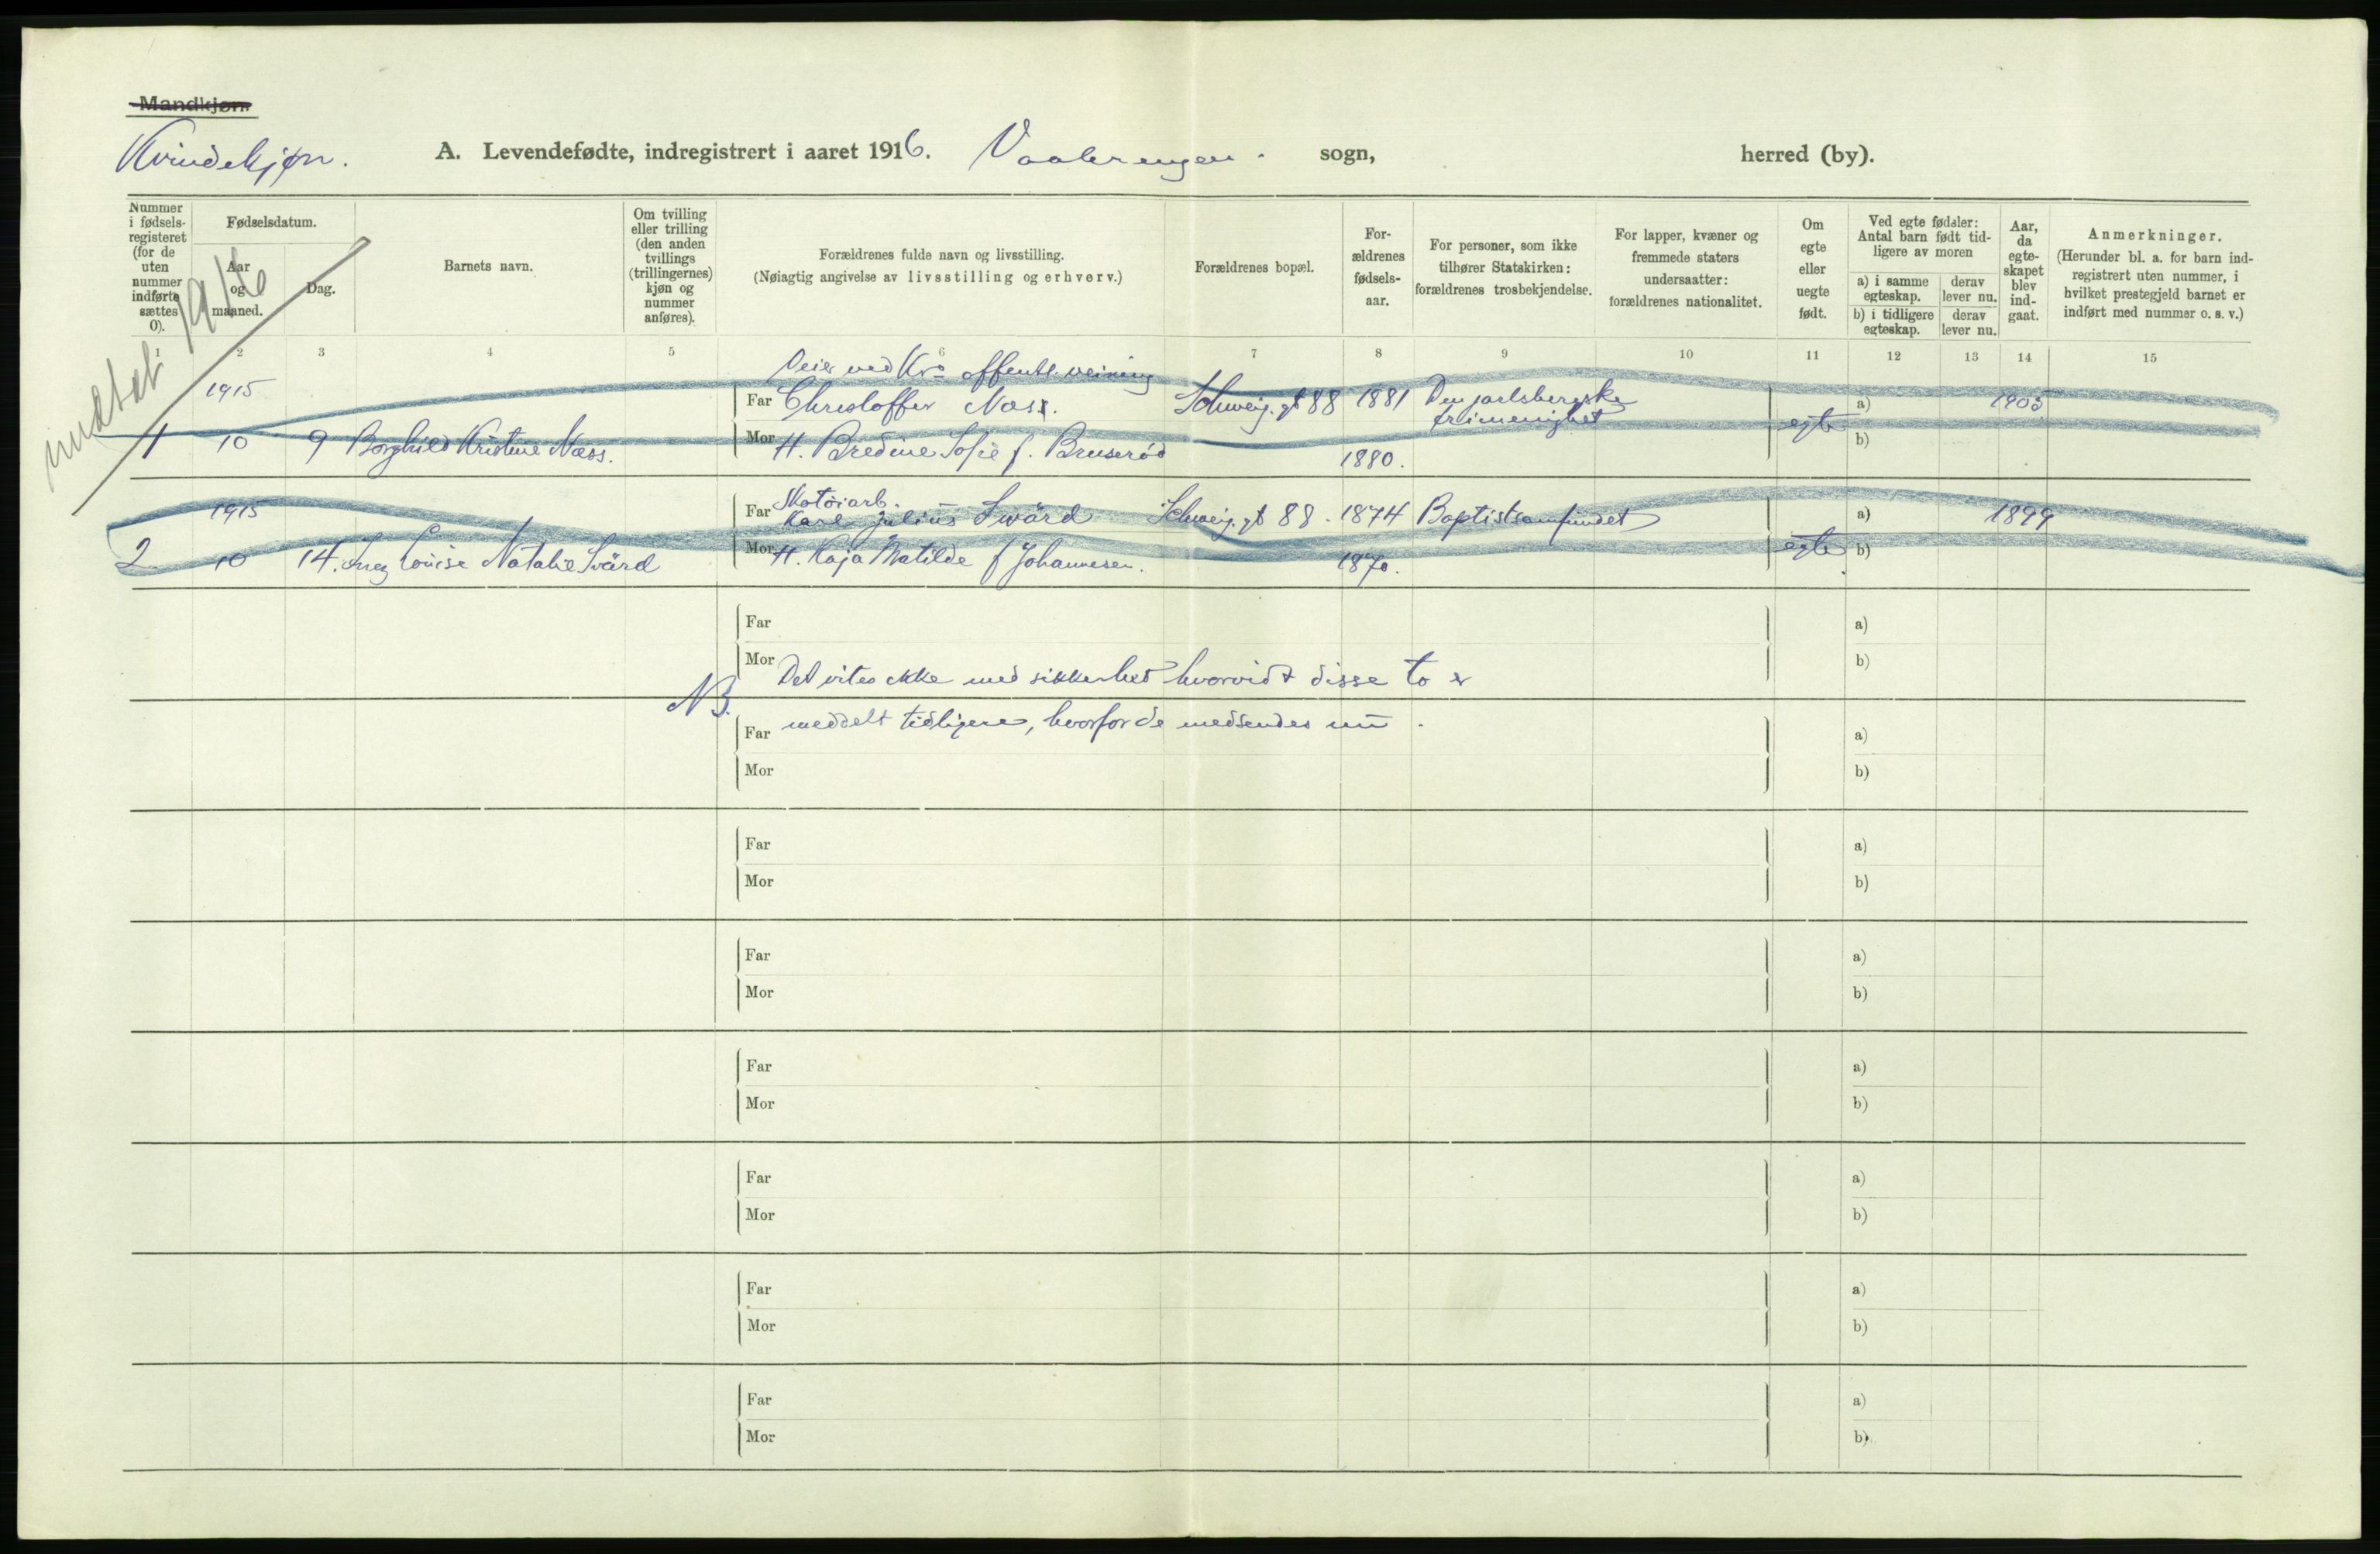 Mandkjøn.
Kvindekjøn. A. Levendefødte, indregistrert i aaret 1916. Vaalerengen. sogn, herred (by).
Nummer i fødsels-registeret (for de uten nummer indførte sættes 0).
Fødselsdatum.
Aar og maaned.
Dag.
Barnets navn.
Om tvilling eller trilling (den anden tvillings (trillingernes) kjøn og nummer anføres).
Forældrenes fulde navn og livsstilling.
(Nøiagtig angivelse av livsstilling og erhverv.)
Forældrenes bopæl.
For-ældrenes fødsels-aar.
For personer, som ikke tilhører Statskirken: forældrenes trosbekjendelse.
For lapper, kvæner og fremmede staters undersaatter: forældrenes nationalitet.
Om egte eller uegte født.
Ved egte fødsler: Antal barn født tid-ligere av moren
a) i samme egteskap.
derav lever nu.
b) i tidligere egteskap.
derav lever nu.
Aar, da egte-skapet blev ind-gaat.
Anmerkninger.
(Herunder bl. a. for barn ind-registrert uten nummer, i hvilket prestegjeld barnet er indført med nummer o. s. v.)
1 2 3 4 5 6 7 8 9 10 11 12 13 14 15
1916
Veier ved Kra offentl. veining
1915 Far Christoffer Næss. Schweig. gt 88 1881 Den jarlsbergske a) 1905
frimenighet
1 10 9 Borghild Kristine Næss. Mor H. Bredine Sofie f. Bruserød 1880. egte b)
Skotøiarb.
1915 Far Karl Julius Swärd Schweig. gt 88. 1874 Baptistsamfundet a) 1899
2 10 14. Inez Louise Natalie Svärd Mor H. Kaja Matilde f Johannesen. 1870. egte b)
Far a)
Mor Det vites ikke med sikkerhed hvorvidt disse to er b)
NB.
Far meddelt tidligere, hvorfor de medsendes nu. a)
Mor b)
Far a)
Mor b)
Far a)
Mor b)
Far a)
Mor b)
Far a)
Mor b)
Far a)
Mor b)
Far a)
Mor b)